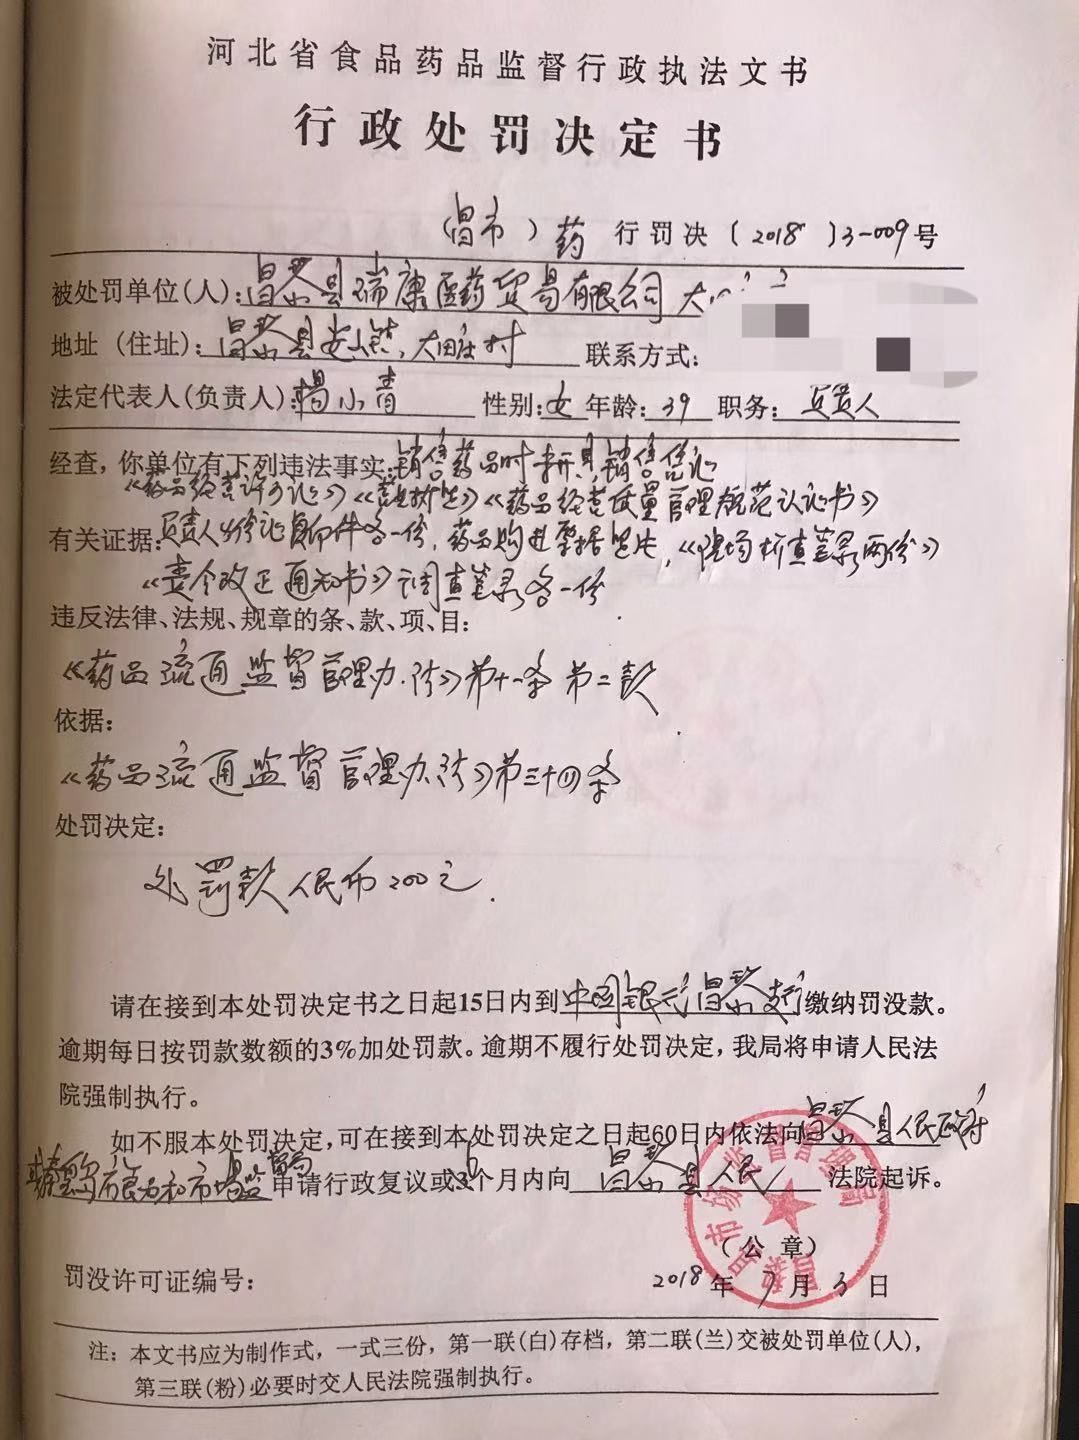 河北省食品药品监督行政执法文书
行政处罚决定书
(昌市)药 行罚决〔2018〕3-009号
被处罚单位(人):昌黎县瑞康医药贸易有限公司大
地址(住址):昌黎县 镇大 庄村 联系方式:
法定代表人(负责人):杨小青 性别:女 年龄:39 职务:负责人
经查,你单位有下列违法事实:销售药品时未开具销售凭证
《药品经营许可证》《营业执照》《药品经营质量管理规范认证书》
有关证据:负责人身份证复印件各一份,药品购进票据照片,《现场检查笔录两份》
《责令改正通知书》调查笔录各一份.
违反法律、法规、规章的条、款、项、目:
《药品流通监督管理办法》第十一条第二款.
依据:
《药品流通监督管理办法》第三十四条
处罚决定:
处罚款人民币200元.
请在接到本处罚决定书之日起15日内到中国银行昌黎支行缴纳罚没款。
逾期每日按罚款数额的3%加处罚款。逾期不履行处罚决定,我局将申请人民法
院强制执行。
如不服本处罚决定,可在接到本处罚决定之日起60日内依法向昌黎县人民政府
秦皇岛市食品和市场监督局申请行政复议或6个月内向昌黎县人民法院起诉。
(公章)
罚没许可证编号: 2018年7月3日
注:本文书应为制作式,一式三份,第一联(白)存档,第二联(兰)交被处罚单位(人),
第三联(粉)必要时交人民法院强制执行。